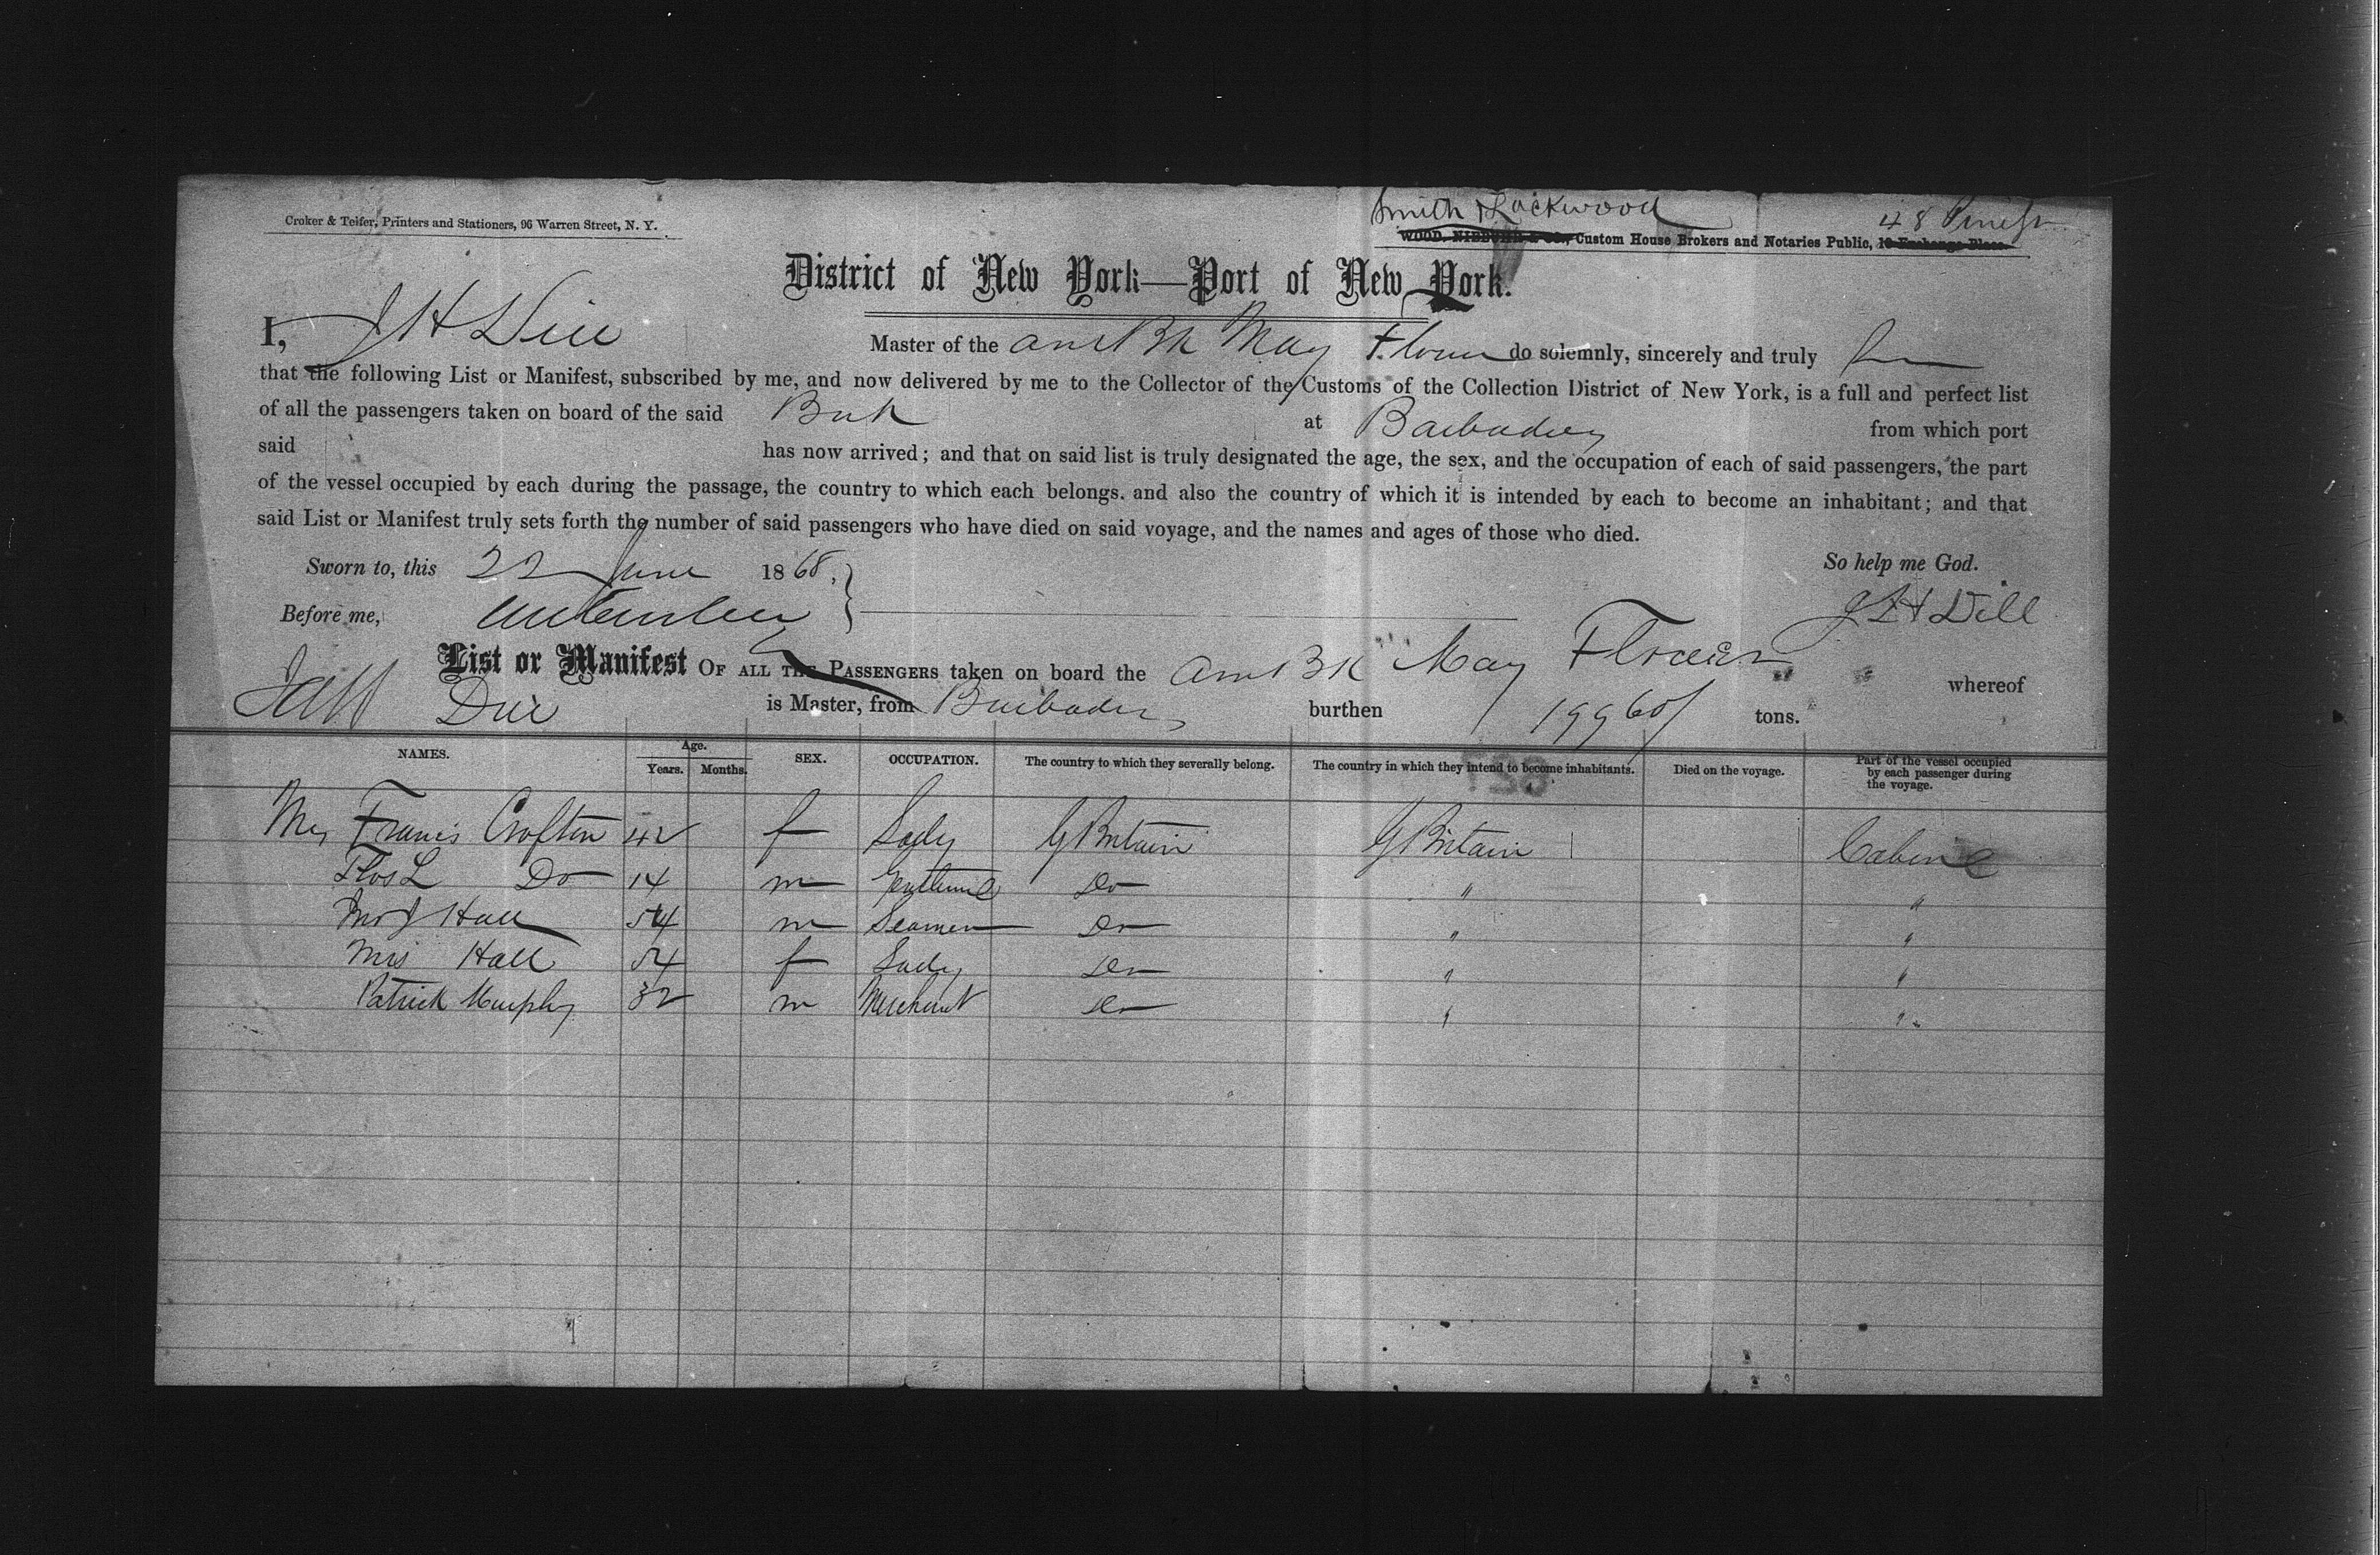 Croker & Teifer, Printers and Stationers, 96 Warren Street, N. Y.
Smith & Lockwood 48 Pine St
WOOD, NIEBUHR & CO., Custom House Brokers and Notaries Public, 18 Exchange Place.
District of New York—Port of New York.
I, J H Dill Master of the Am Bk May Flower do solemnly, sincerely and truly
that the following List or Manifest, subscribed by me, and now delivered by me to the Collector of the Customs of the Collection District of New York, is a full and perfect list
of all the passengers taken on board of the said Bark at Barbadoes from which port
said has now arrived; and that on said list is truly designated the age, the sex, and the occupation of each of said passengers, the part
of the vessel occupied by each during the passage, the country to which each belongs. and also the country of which it is intended by each to become an inhabitant; and that
said List or Manifest truly sets forth the number of said passengers who have died on said voyage, and the names and ages of those who died.
Sworn to, this 22 June 1868, So help me God.
Before me, J H Dill
List or Manifest OF ALL THE PASSENGERS taken on board the Am Bk May Flower whereof
Dill is Master, from Barbadoes burthen 199 60/ tons.
NAMES. Age. Years. Months. SEX. OCCUPATION. The country to which they severally belong. The country in which they intend to become inhabitants. Died on the voyage. Part of the vessel occupied by each passenger during the voyage.
Mrs Francis Crofton 42 f Lady G Britain G Britain Cabin
Thos L Do 14 m Do " "
Hall 54 m Seamen Do " "
Mrs Hall 54 f Lady Do " "
Patrick Murphy 32 m Merchant Do " "